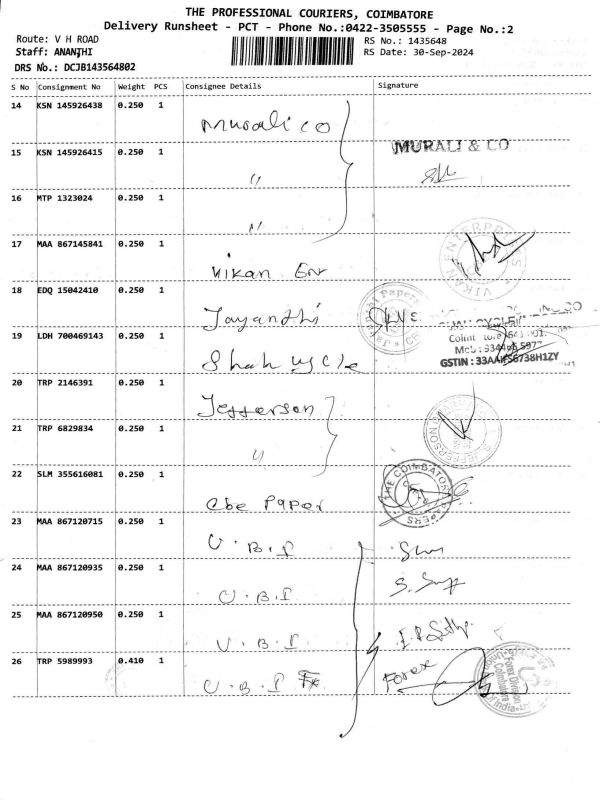 THE PROFESSIONAL COURIERS, COIMBATORE
Delivery Runsheet - PCT - Phone No.:0422-3505555 - Page No.:2
Route: V H ROAD
RS No.: 1435648
Staff: ANANTHI
RS Date: 30-Sep-2024
DRS No.: DCJB143564802
S No Consignment No Weight PCS Consignee Details Signature
14 KSN 145926438 0.250 1 Murali co
15 KSN 145926415 0.250 1 " MURALI & CO
16 MTP 1323024 0.250 1 "
17 MAA 867145841 0.250 1 Vikan Enr VIKAN ENTERPRISES
18 EDQ 15042410 0.250 1 Jayandhi
19 LDH 700469143 0.250 1 Shah cycle
GSTIN : 33AAIFS6738H1ZY
20 TRP 2146391 0.250 1 Jefferson
21 TRP 6829834 0.250 1 " JEFFERSON
22 SLM 355616081 0.250 1 Cbe Paper THE COIMBATORE PAPERS
23 MAA 867120715 0.250 1 U.B.I
24 MAA 867120935 0.250 1 U.B.I
25 MAA 867120950 0.250 1 U.B.I
26 TRP 5989993 0.410 1 U.B.I Fx Forex
Forex Division
Coimbatore